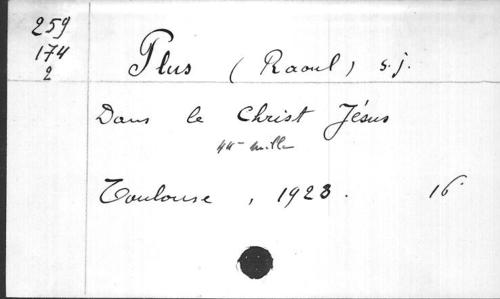 259
174
2
Plus (Raoul) s.j.
Dans le Christ Jésus
44e mille
Toulouse, 1923. 16°